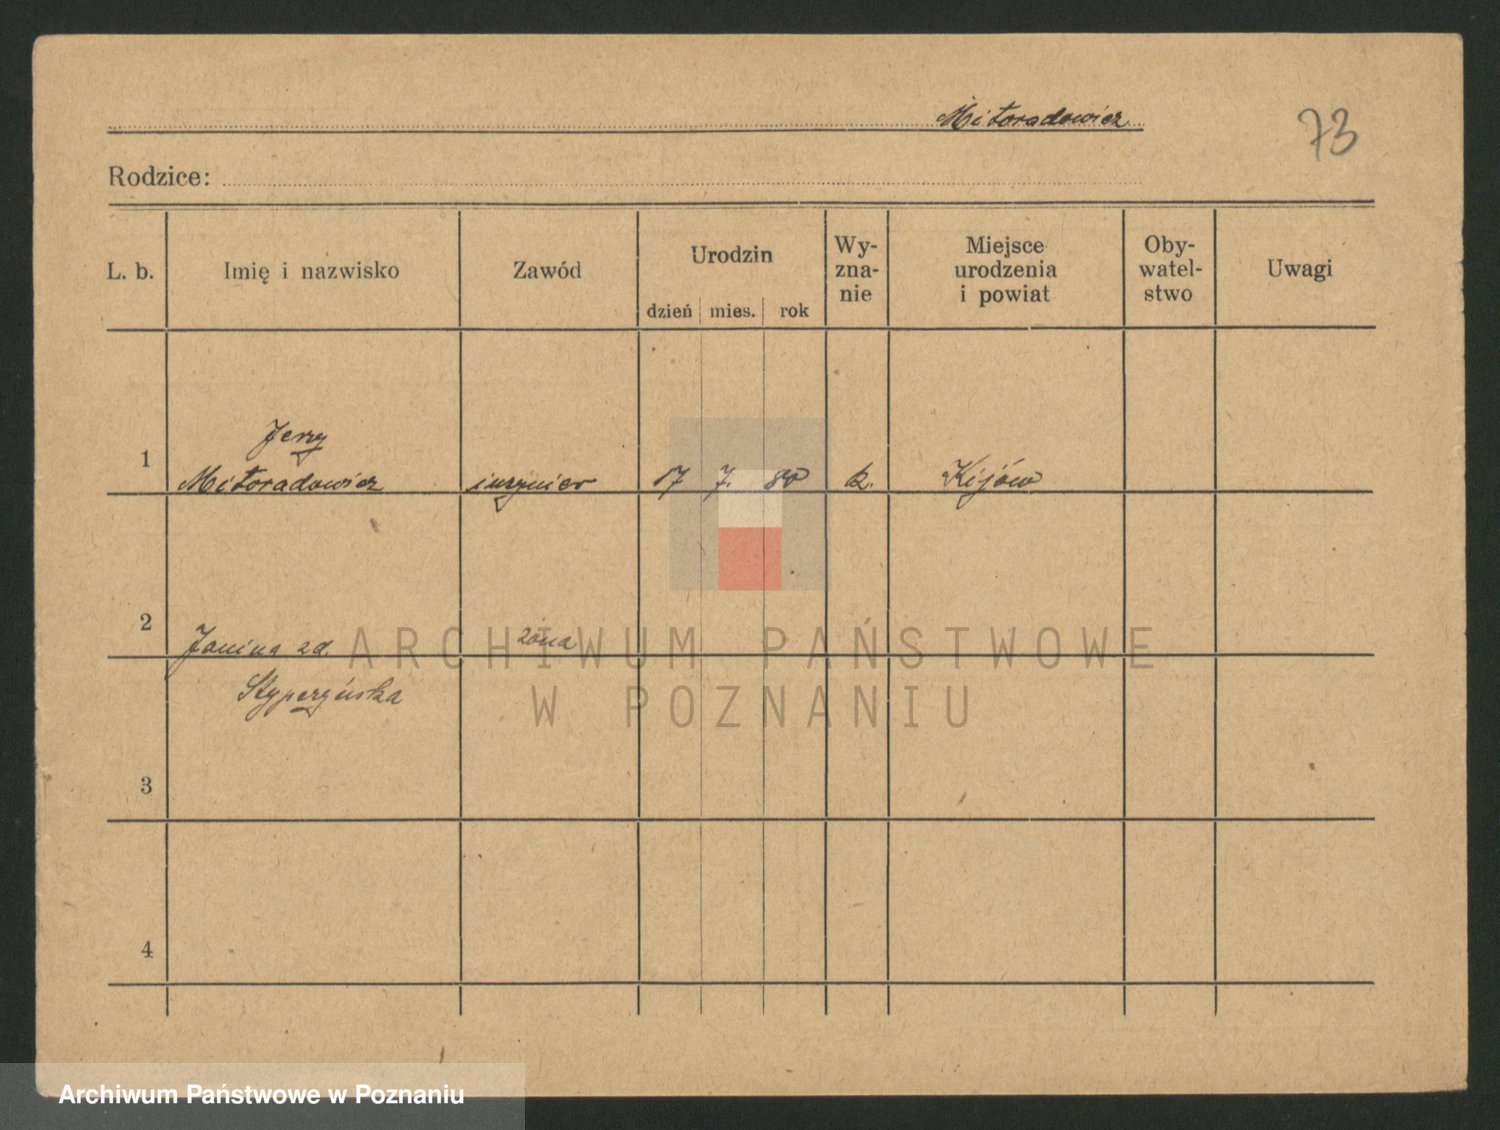 Mitoradowicz
73
Rodzice:
L. b.
Imię i nazwisko
Zawód
Urodzin
dzień mies. rok
Wy-
zna-
nie
Miejsce
urodzenia
i powiat
Oby-
watel-
stwo
Uwagi
1
Jerzy
Mitoradowicz
inżynier
17 7. 80
k.
Kijów
2
Janina zd.
żona
Stypczyńska
3
4
ARCHIWUM PAŃSTWOWE
W POZNANIU
Archiwum Państwowe w Poznaniu